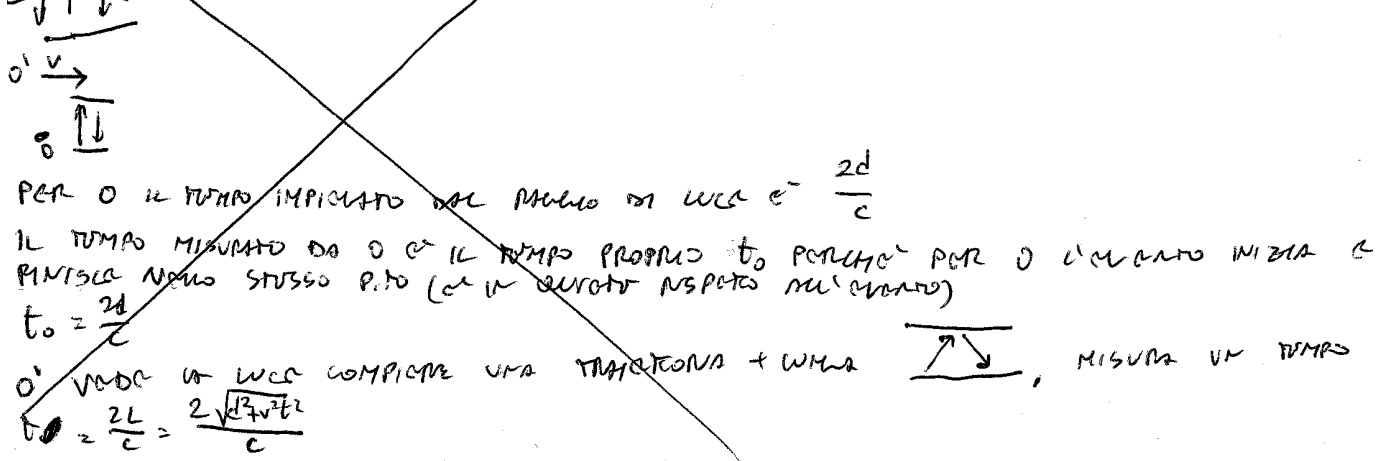 O' v
O
PER O IL TEMPO IMPIEGATO DAL RAGGIO DI LUCE E' 2d/c
IL TEMPO MISURATO DA O E' IL TEMPO PROPRIO t₀ PERCHE' PER O L'EVENTO INIZIA E
FINISCE NELLO STESSO P.TO (E' IN QUIETE RISPETTO ALL'EVENTO)
t₀ = 2d/c
O' VEDE LA LUCE COMPIERE UNA TRAIETTORIA + LUNGA , MISURA UN TEMPO
t = 2L/c = 2√(d²+v²t²)/c